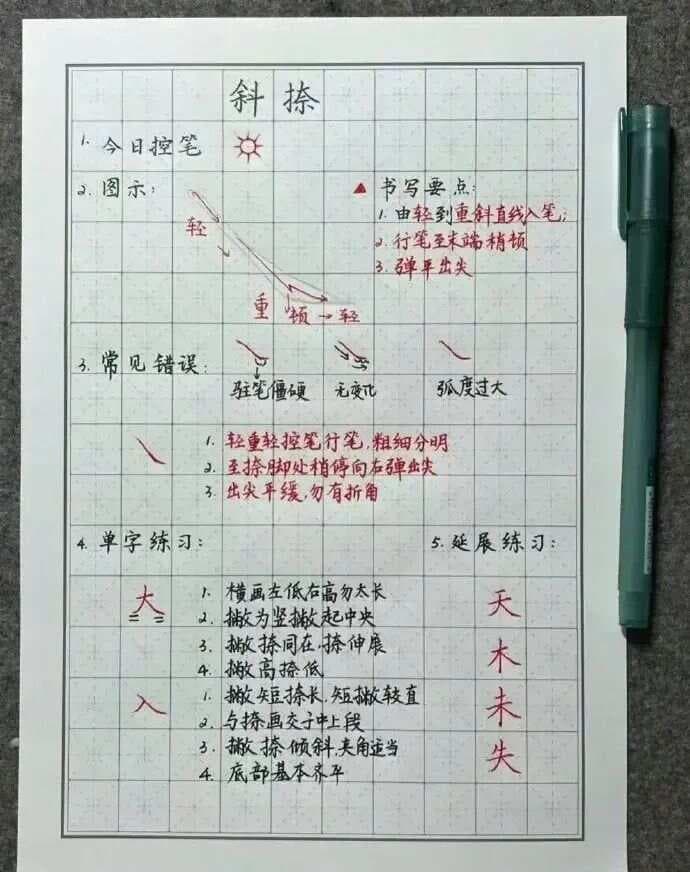 斜捺
1. 今日控笔
2. 图示:
轻
重 顿→轻
▲ 书写要点:
1. 由轻到重斜直线入笔;
2. 行笔至末端稍顿
3. 弹平出尖
3. 常见错误:
驻笔僵硬 无变化 弧度过大
1. 轻重轻控笔行笔,粗细分明
2. 至捺脚处稍停向右弹出尖
3. 出尖平缓,勿有折角
4. 单字练习:
大
1. 横画左低右高勿太长
2. 撇为竖撇起中央
3. 撇捺同在,捺伸展
4. 撇高捺低
入
1. 撇短捺长,短撇较直
2. 与捺画交于中上段
3. 撇捺倾斜,夹角适当
4. 底部基本齐平
5. 延展练习:
天
木
未
失